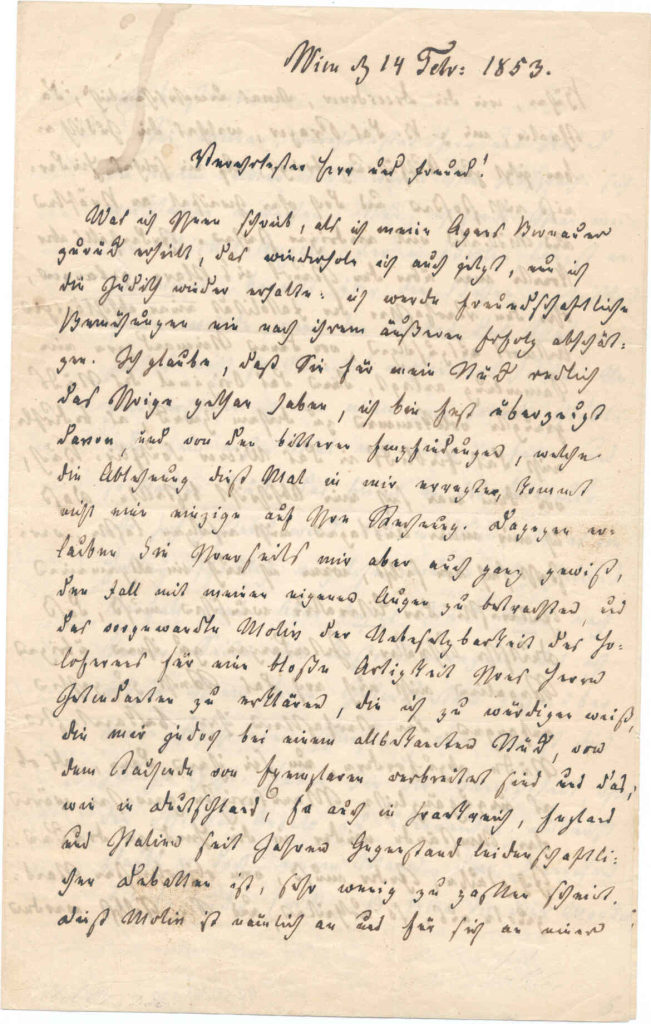 Wien d 14 Febr: 1853.
Verehrtester Herr und Freund!
Was ich Ihnen schrieb, als ich meine Agnes Bernauer
zurück erhielt, das wiederhole ich auch jetzt, wo ich
die Judith wieder erhalte: ich werde freundschaftliche
Bemühungen nie nach ihrem äußeren Erfolg abschät-
zen. Ich glaube, daß Sie für mein Stück redlich
das Ihrige gethan haben, ich bin fest überzeugt
davon, und von den bitteren Empfindungen, welche
die Ablehnung dieß Mal in mir erregten, kommt
nicht eine einzige auf Ihre Rechnung. Dagegen er-
lauben Sie Ihrerseits mir aber auch ganz gewiß,
den Fall mit meinen eigenen Augen zu betrachten und
das vorgewandte Motiv der Unbesetzbarkeit des Ho-
lofernes für eine bloße Artigkeit Ihres Herrn
Intendanten zu erklären, die ich zu würdigen weiß,
die mir jedoch bei einem allbekannten Stück, von
dem Tausende von Exemplaren verbreitet sind und das,
wie in Deutschland, so auch in Frankreich, England
und Italien seit Jahren Gegenstand leidenschaftli-
cher Debatten ist, sehr wenig zu passen scheint.
Dieß Motiv ist nämlich an und für sich an einem